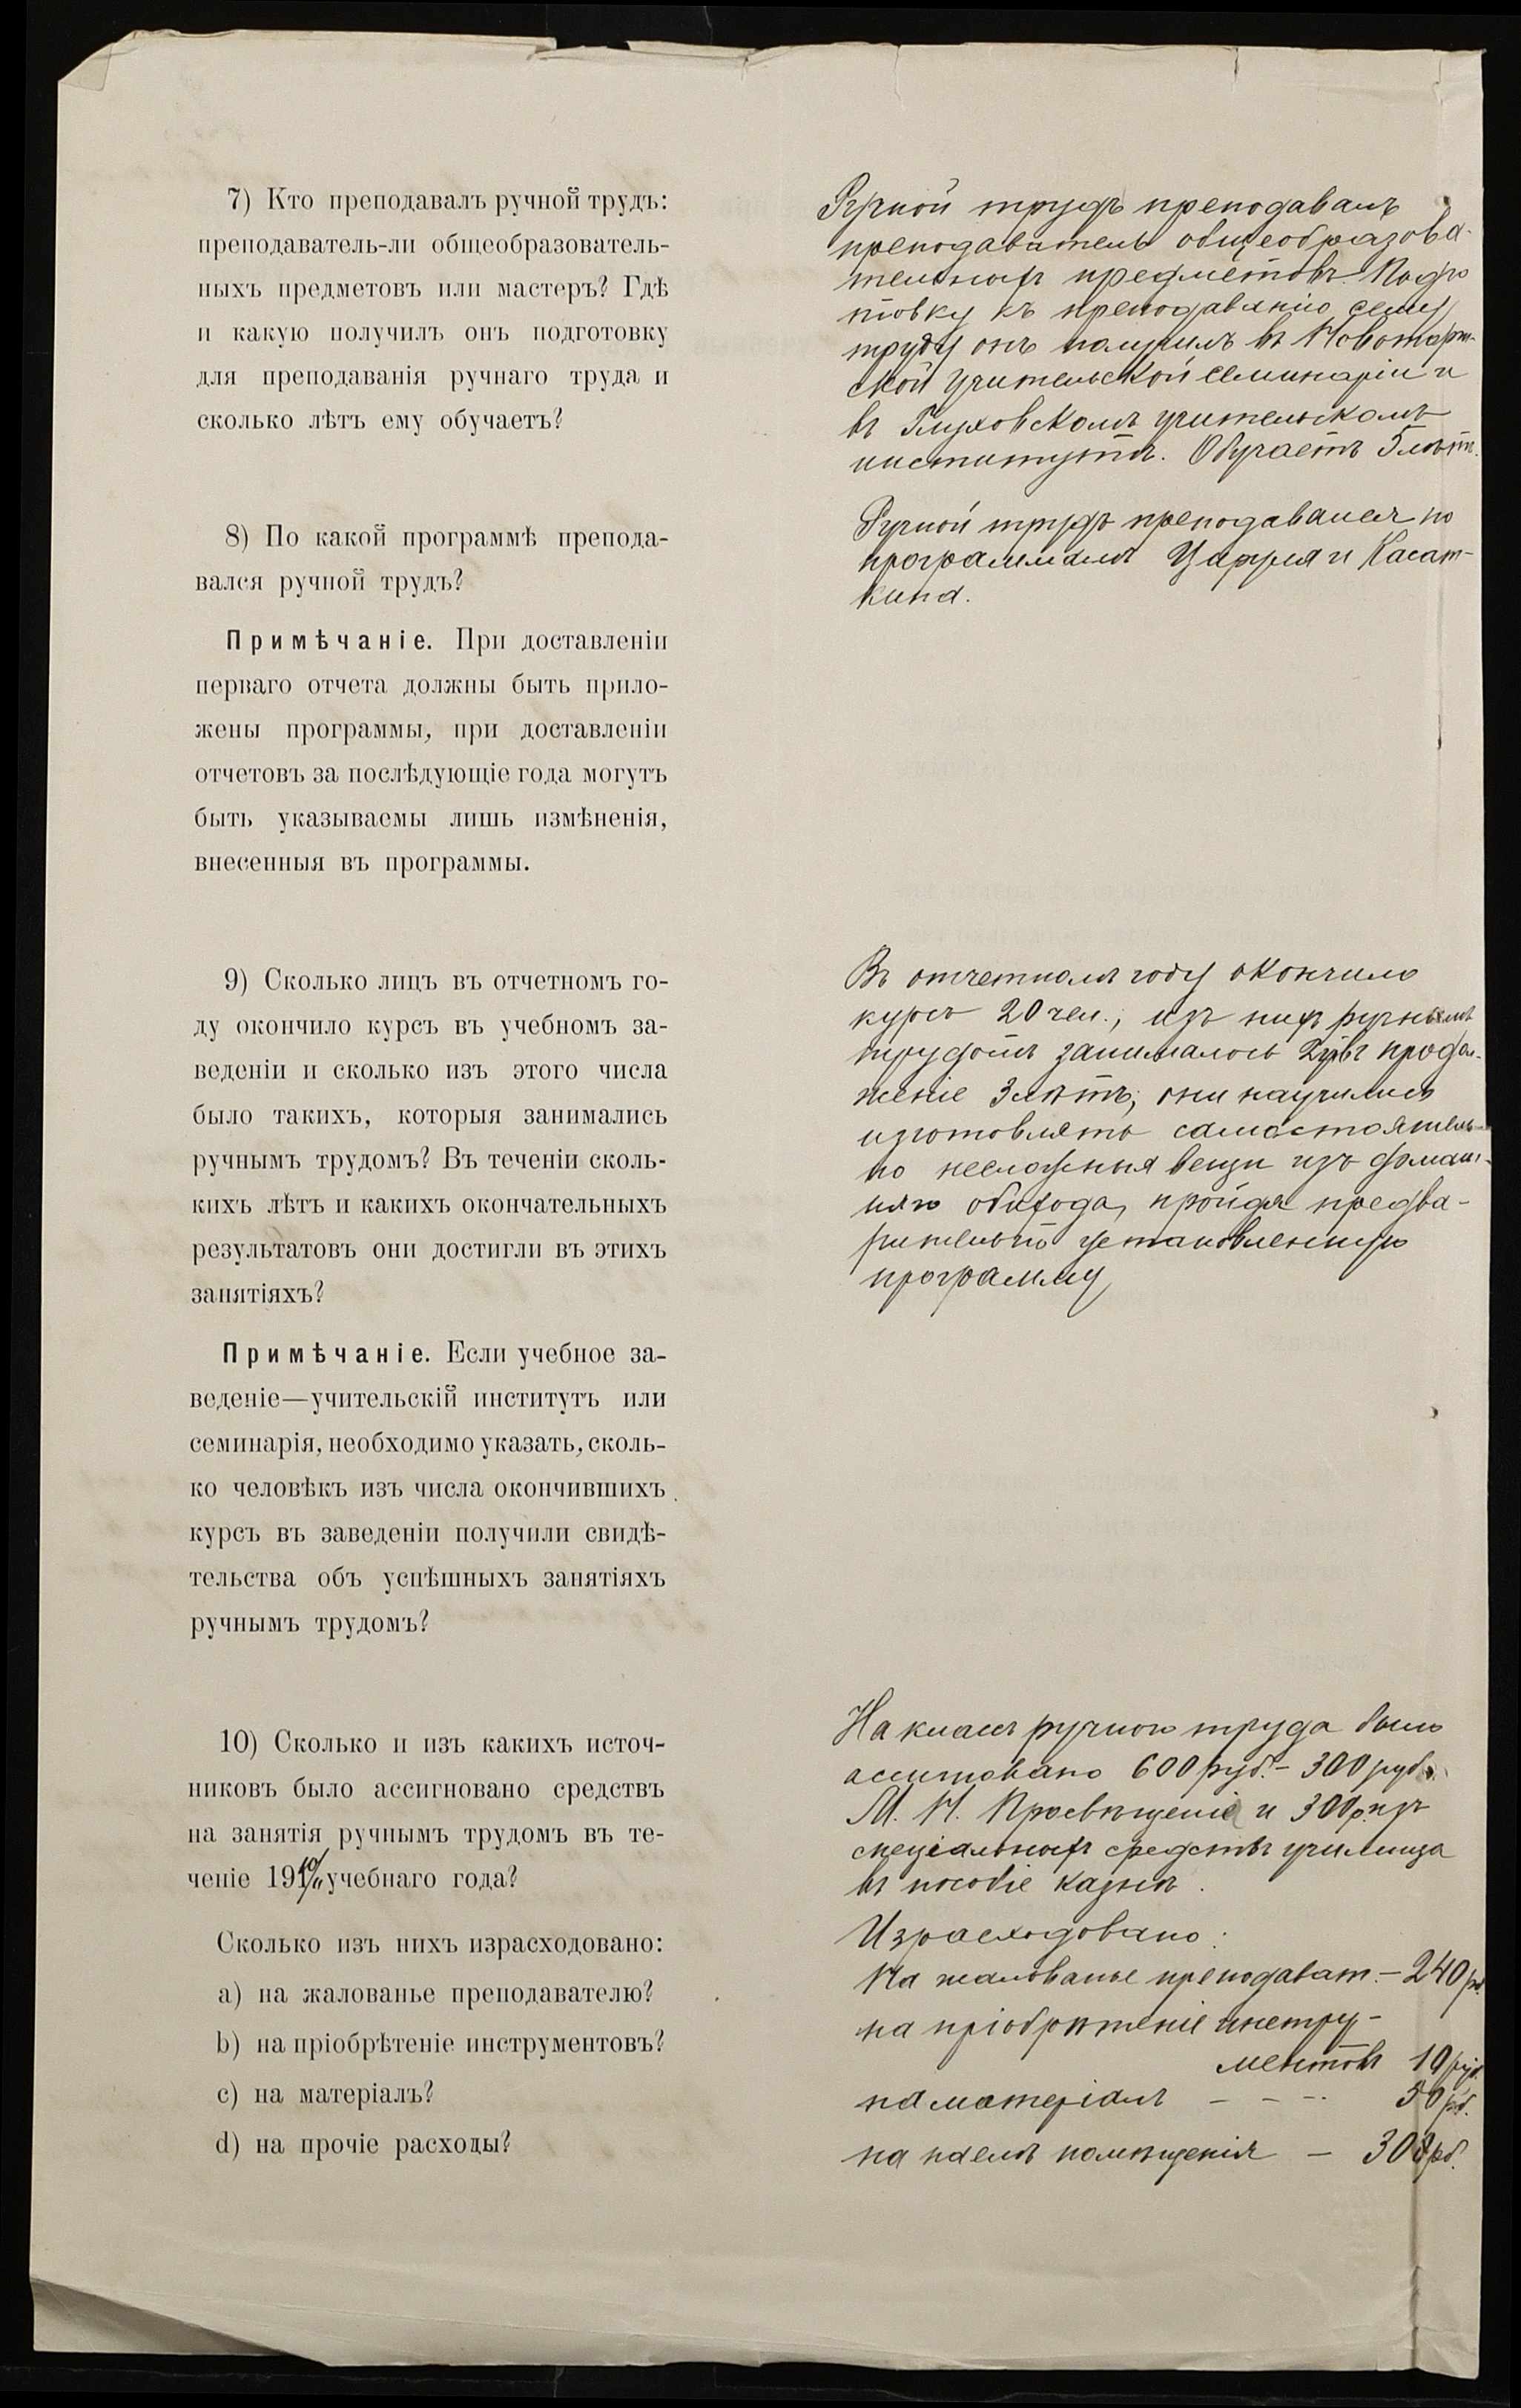 7) Кто преподавалъ ручной трудъ:
преподаватель-ли общеобразователь-
ныхъ предметовъ или мастеръ? Гдѣ
и какую получилъ онъ подготовку
для преподаванія ручнаго труда и
сколько лѣтъ ему обучаетъ?
Ручной трудъ преподавалъ
преподаватель общеобразова-
тельныхъ предметовъ. Подго
товку къ преподаванію сему
труду онъ получилъ въ Новоторж-
ской учительской семинаріи и
въ Глуховскомъ учительскомъ
институтѣ. Обучаетъ 5 лѣтъ.
8) По какой программѣ препода-
вался ручной трудъ?
Ручной трудъ преподавался по
программамъ Цируля и Касат-
кина.
Примѣчаніе. При доставленіи
перваго отчета должны быть прило-
жены программы, при доставленіи
отчетовъ за послѣдующіе года могутъ
быть указываемы лишь измѣненія,
внесенныя въ программы.
9) Сколько лицъ въ отчетномъ го-
ду окончило курсъ въ учебномъ за-
веденіи и сколько изъ этого числа
было такихъ, которыя занимались
ручнымъ трудомъ? Въ теченіи сколь-
кихъ лѣтъ и какихъ окончательныхъ
результатовъ они достигли въ этихъ
занятіяхъ?
Въ отчетномъ году окончило
курсъ 20 чел., изъ нихъ ручнымъ
трудомъ занималось въ продол-
женіе 3 лѣтъ; они научились
изготовлять самостоятель-
но несложныя вещи изъ домаш-
няго обихода, пройдя предва-
рительно установленную
программу
Примѣчаніе. Если учебное за-
веденіе—учительскій институтъ или
семинарія, необходимо указать, сколь-
ко человѣкъ изъ числа окончившихъ
курсъ въ заведеніи получили свидѣ-
тельства объ успѣшныхъ занятіяхъ
ручнымъ трудомъ?
10) Сколько и изъ какихъ источ-
никовъ было ассигновано средствъ
на занятія ручнымъ трудомъ въ те-
ченіе 1910/11 учебнаго года?
На классъ ручного труда было
ассигновано 600 руб. – 300 руб.
М. Н. Просвѣщенія и 300 р. изъ
спеціальныхъ средствъ училища
въ пособіе казнѣ.
Сколько изъ нихъ израсходовано:
a) на жалованье преподавателю?
b) на пріобрѣтеніе инструментовъ?
c) на матеріалъ?
d) на прочіе расходы?
Израсходовано:
На жалованье преподават. – 240 р.
на пріобрѣтеніе инстру-
ментовъ 10 руб.
на матеріалъ – – – 50 рб.
на наемъ помѣщенія – 300 рб.